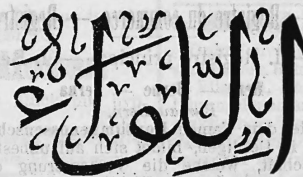 اللواء